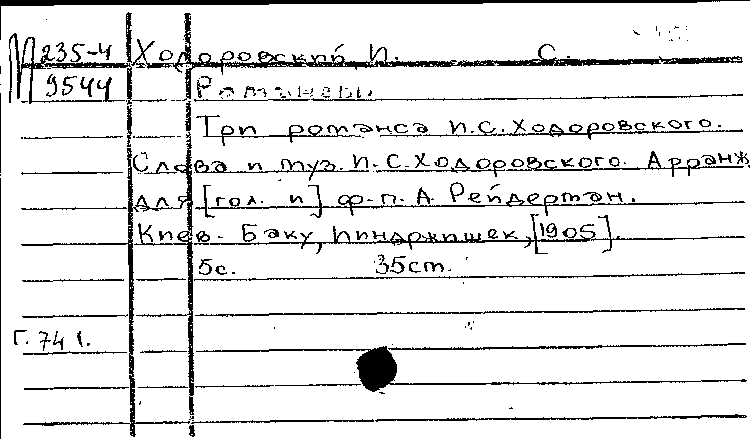 М 235-4 Ходоровский, И. С.
9544 Романсы.
Три романса И.С.Ходоровского.
Слова и муз. И.С.Ходоровского. Арранж
для [гол. и] ф-п. А. Рейдерман.
Киев-Баку, Индржишек, [1905].
5с. 35см.
Г. 74 г.